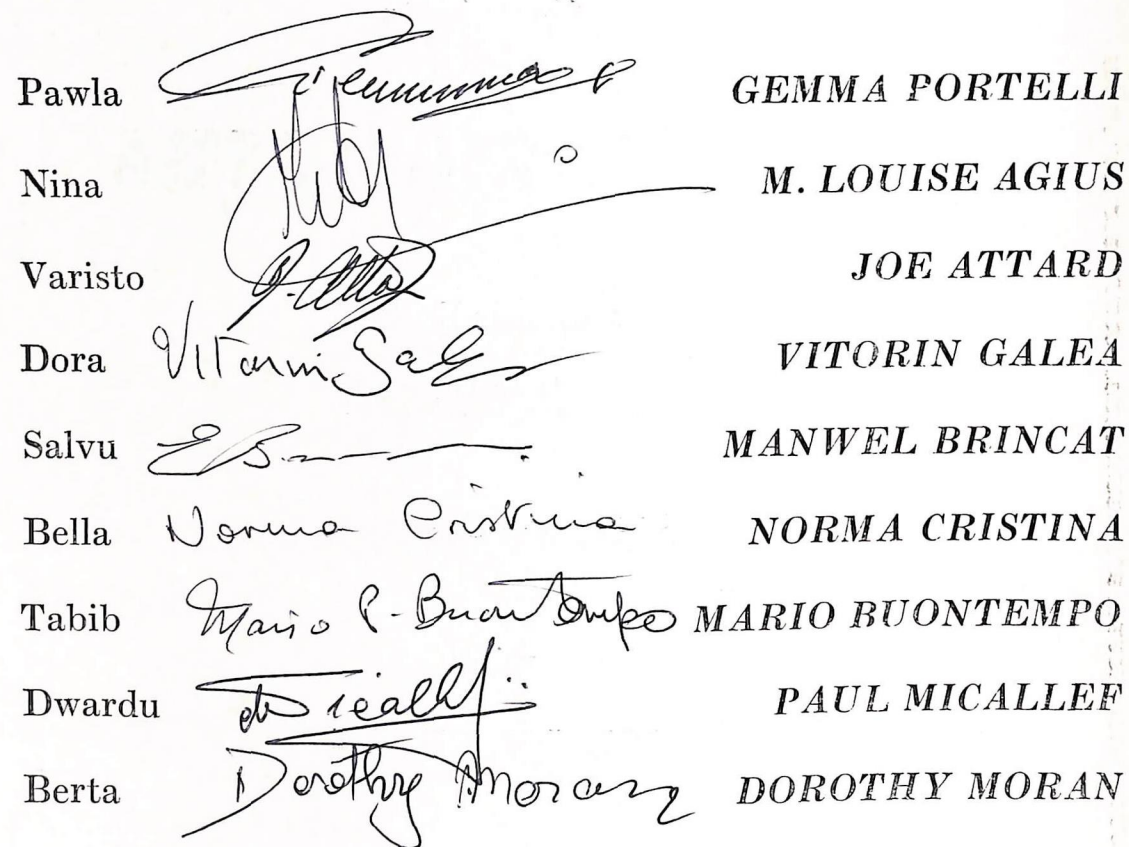 Pawla Gemma GEMMA PORTELLI
Nina M. LOUISE AGIUS
Varisto J. Attard JOE ATTARD
Dora Vitorin Galea VITORIN GALEA
Salvu MANWEL BRINCAT
Bella Norma Cristina NORMA CRISTINA
Tabib Mario P. Buontempo MARIO BUONTEMPO
Dwardu PAUL MICALLEF
Berta Dorothy Moran DOROTHY MORAN